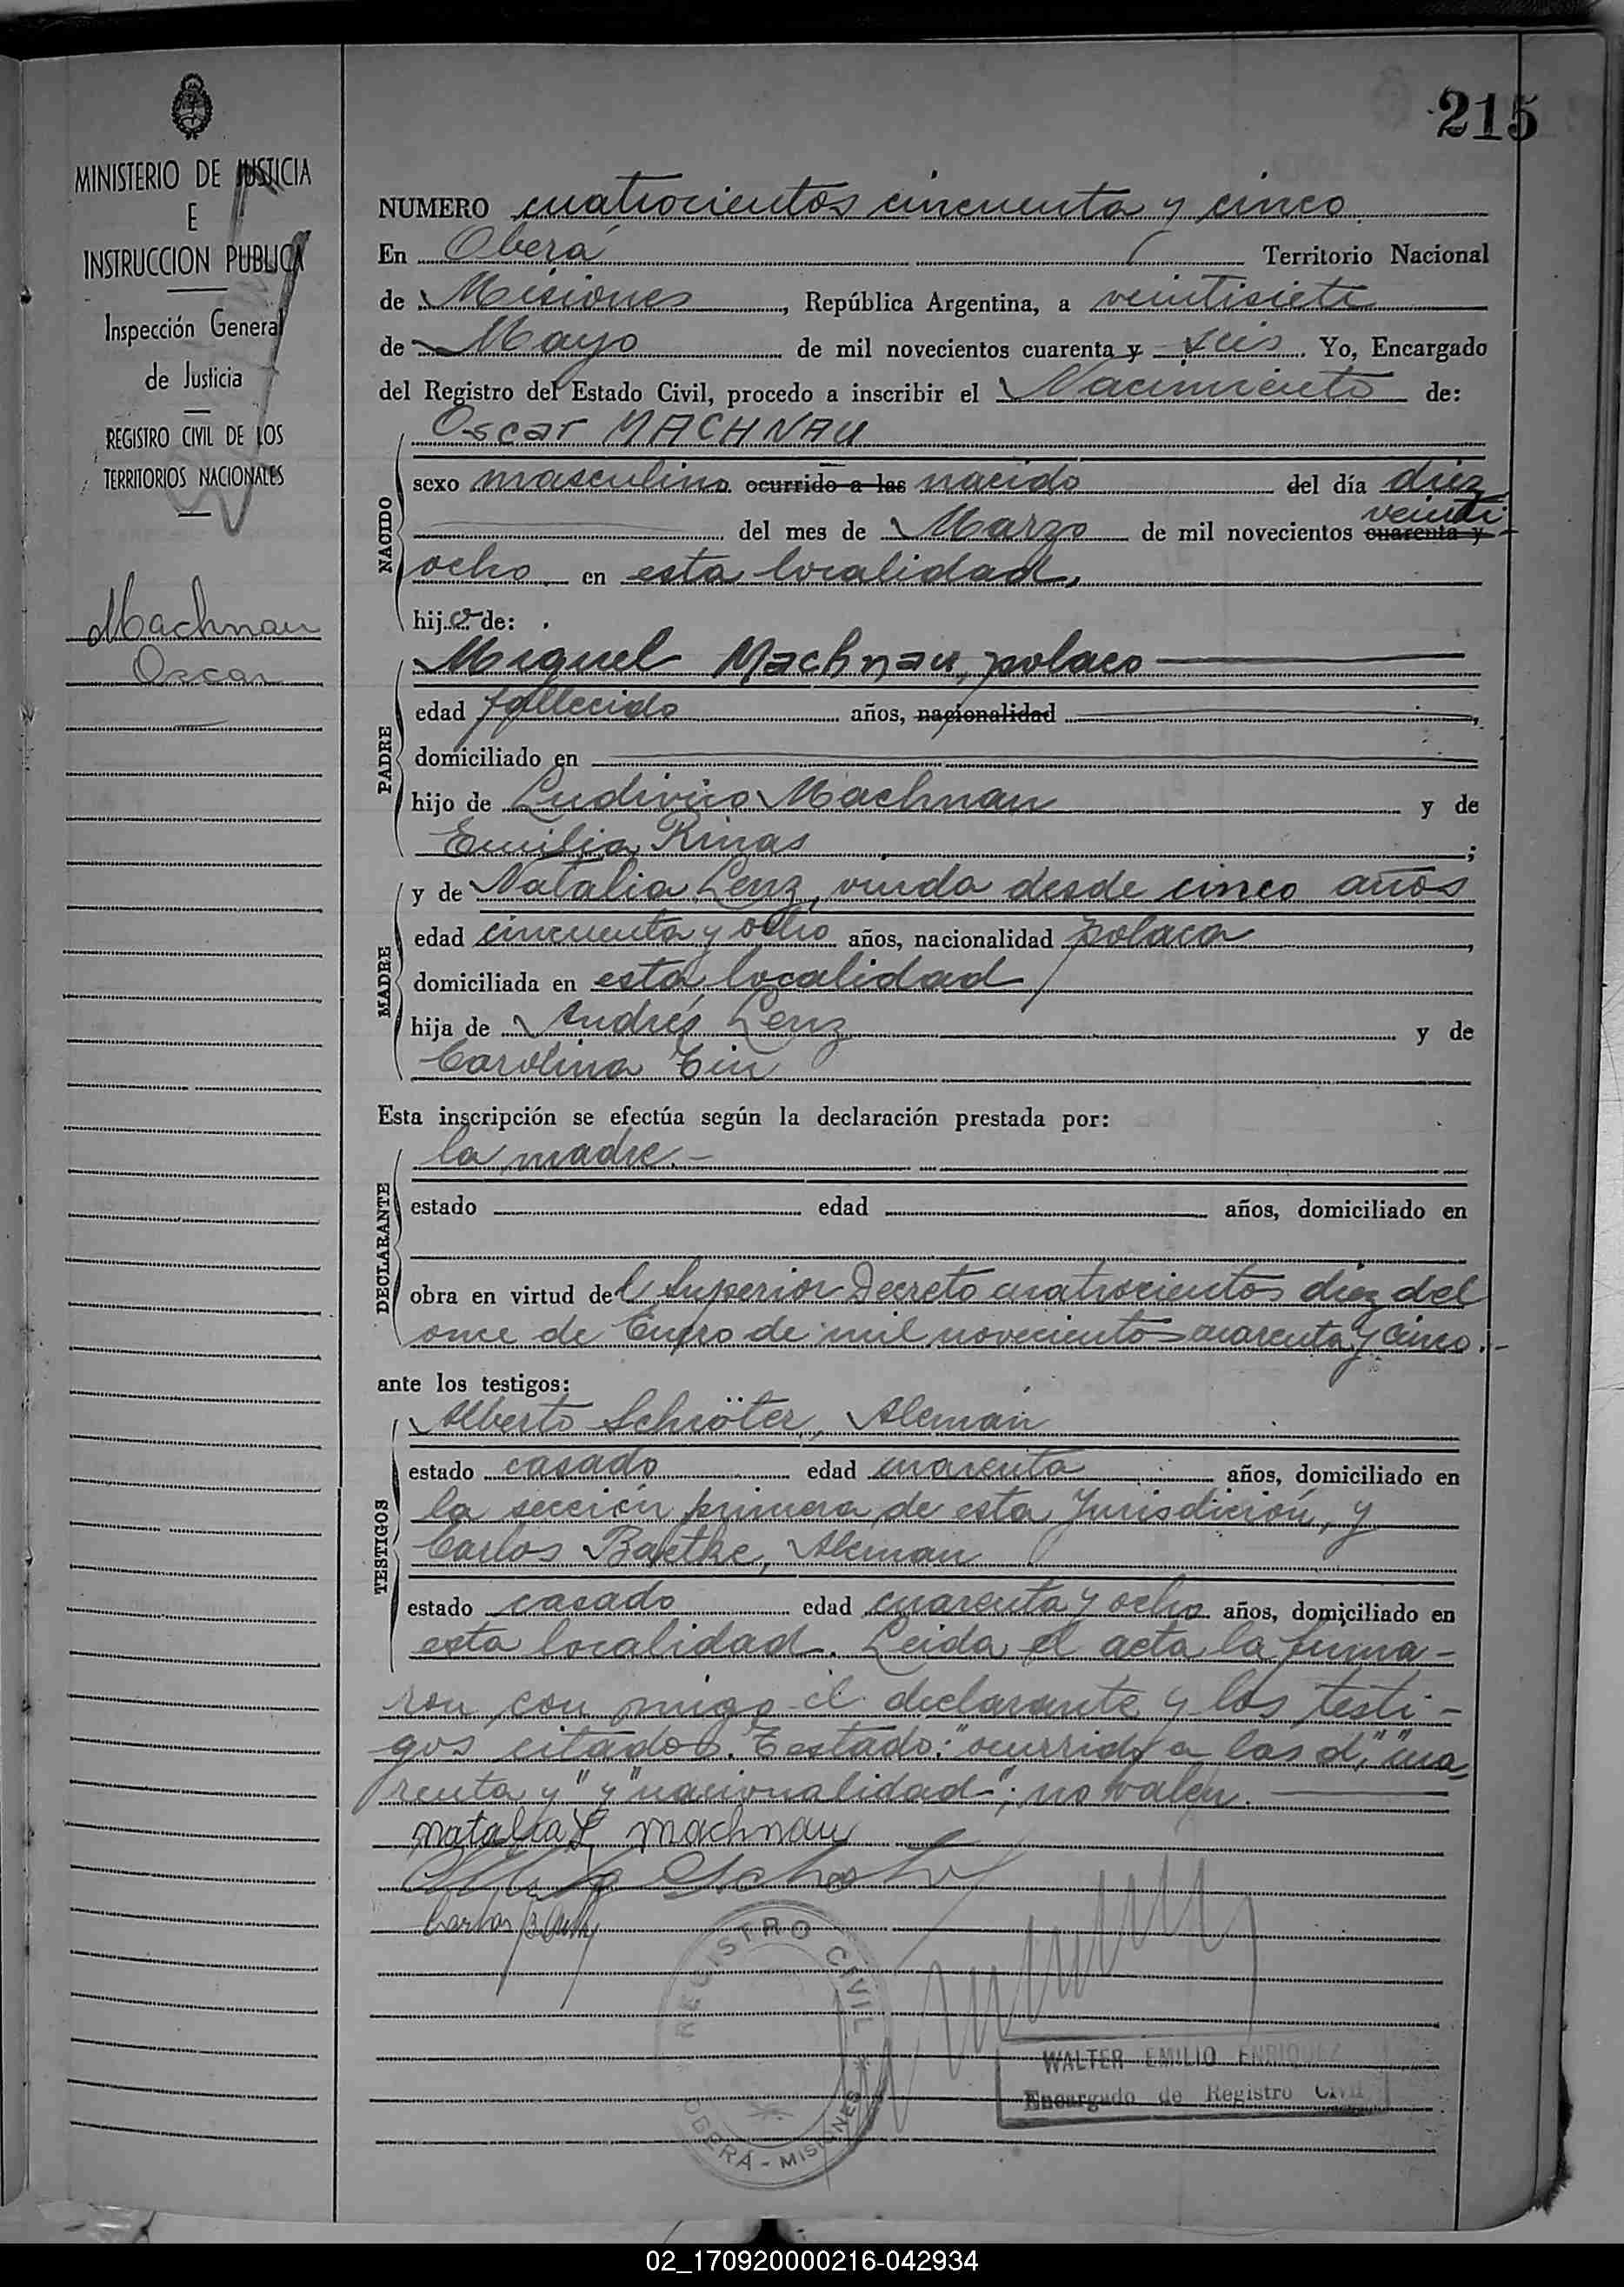 215
MINISTERIO DE JUSTICIA
E
INSTRUCCION PUBLICA
Inspección General
de Justicia
REGISTRO CIVIL DE LOS
TERRITORIOS NACIONALES
Machnau
Oscar
NUMERO cuatrocientos cincuenta y cinco
En Oberá Territorio Nacional
de Misiones, República Argentina, a veintisiete
de Mayo de mil novecientos cuarenta y seis. Yo, Encargado
del Registro del Estado Civil, procedo a inscribir el Nacimiento de:
Oscar MACHNAU
NACIDO
sexo masculino ocurrido a las nacido del día diez
del mes de Marzo de mil novecientos cuarenta y veinti-
ocho en esta localidad,
hijo de:
PADRE
Miguel Machnau, polaco
edad fallecido años, nacionalidad
domiciliado en
hijo de Ludivico Machnau y de
Emilia Rinas;
MADRE
y de Natalia Lenz, viuda desde cinco años
edad cincuenta y ocho años, nacionalidad polaca,
domiciliada en esta localidad
hija de Andrés Lenz y de
Carolina
Esta inscripción se efectúa según la declaración prestada por:
DECLARANTE
la madre.-
estado edad años, domiciliado en
obra en virtud del Superior Decreto cuatrocientos diez del
once de Enero de mil novecientos cuarenta y cinco.-
ante los testigos:
TESTIGOS
Alberto Schröter, Alemán
estado casado edad cuarenta años, domiciliado en
la sección primera de esta Jurisdición, y
Carlos Baethe, Aleman
estado casado edad cuarenta y ocho años, domiciliado en
esta localidad. Leida el acta la firma-
ron con migo el declarante y los testi-
gos citados. Testado: "ocurrido a las d," "cua-
renta y" y "nacionalidad"; no valen.
Natalia L Machnau
Carlos
REGISTRO CIVIL
OBERÁ - MISIONES
WALTER EMILIO ENRIQUEZ
Encargado de Registro Civil
02_170920000216-042934